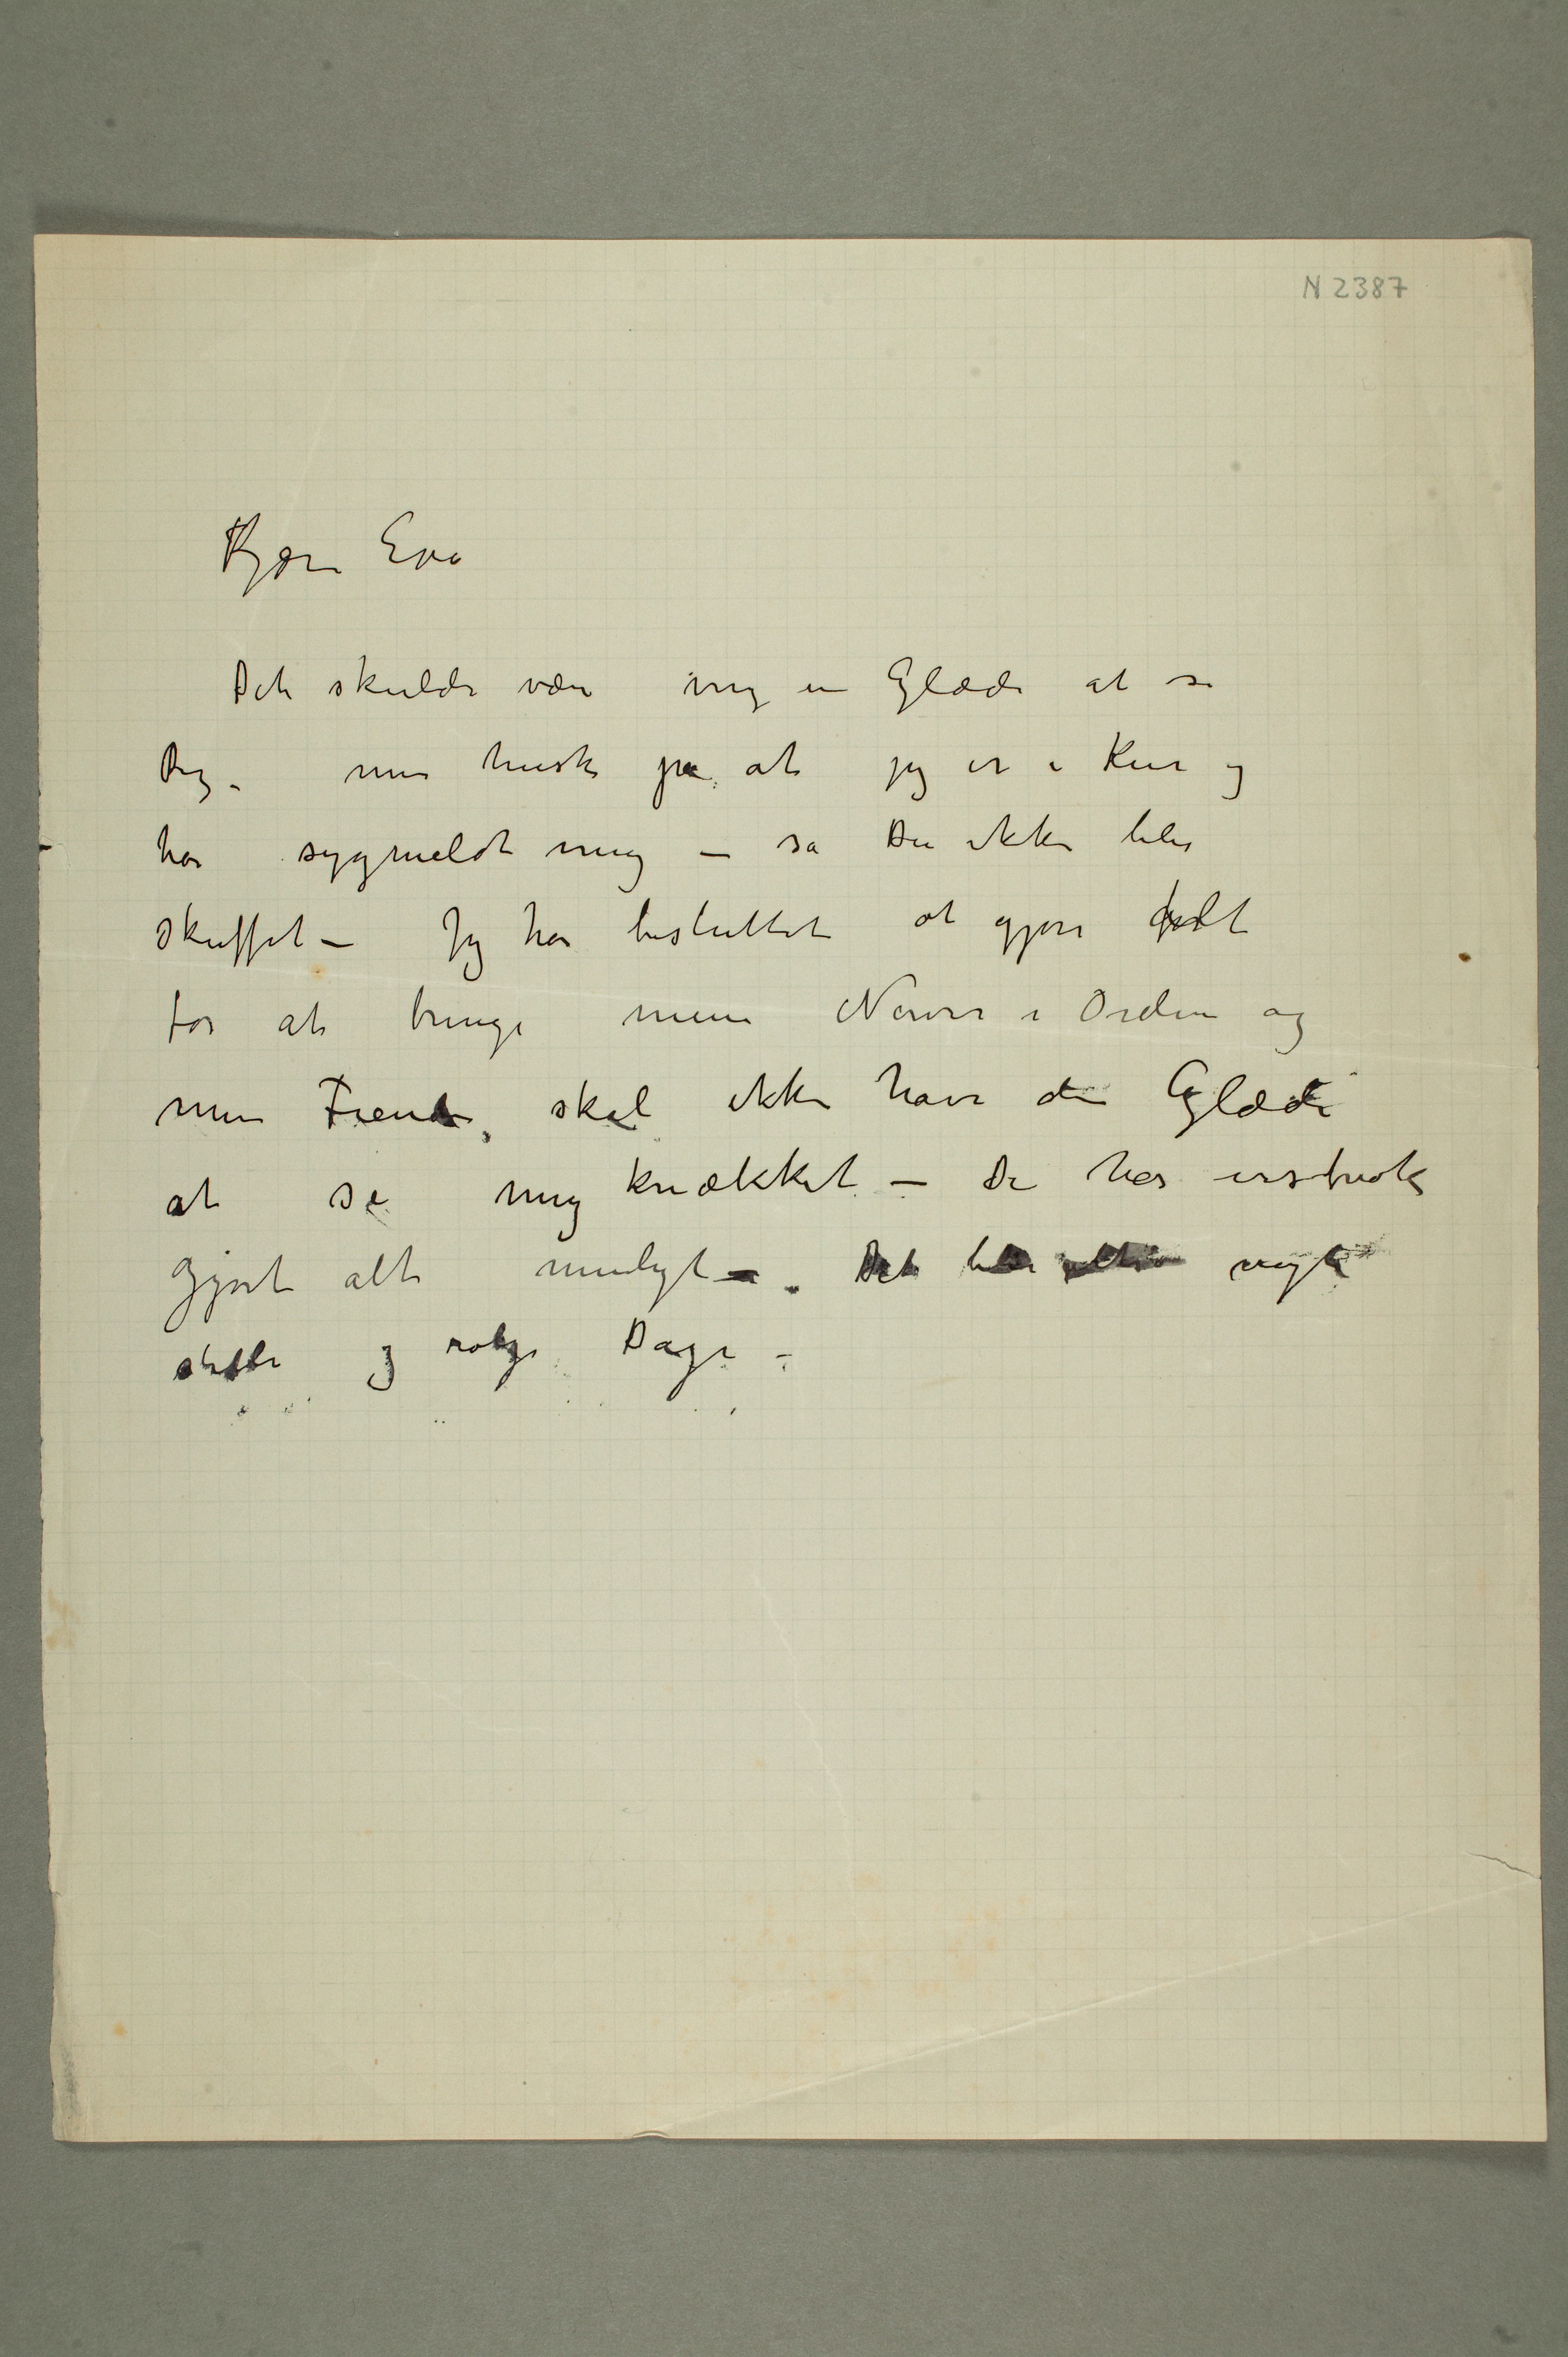 N 2387
Kjære Eva
Det skulde være mig en Glæde at se
Dig – men husk på at jeg er i Kur og
har sygmeldt mig – så Du ikke blir
skuffet – Jeg har besluttet at gjøre alt
for at bringe mine Nerver i Orden og
mine Fiender skal ikke have den Glæde
at se mig knækket – De har
gjort alt muligt – Det
stille og rolige Dage –